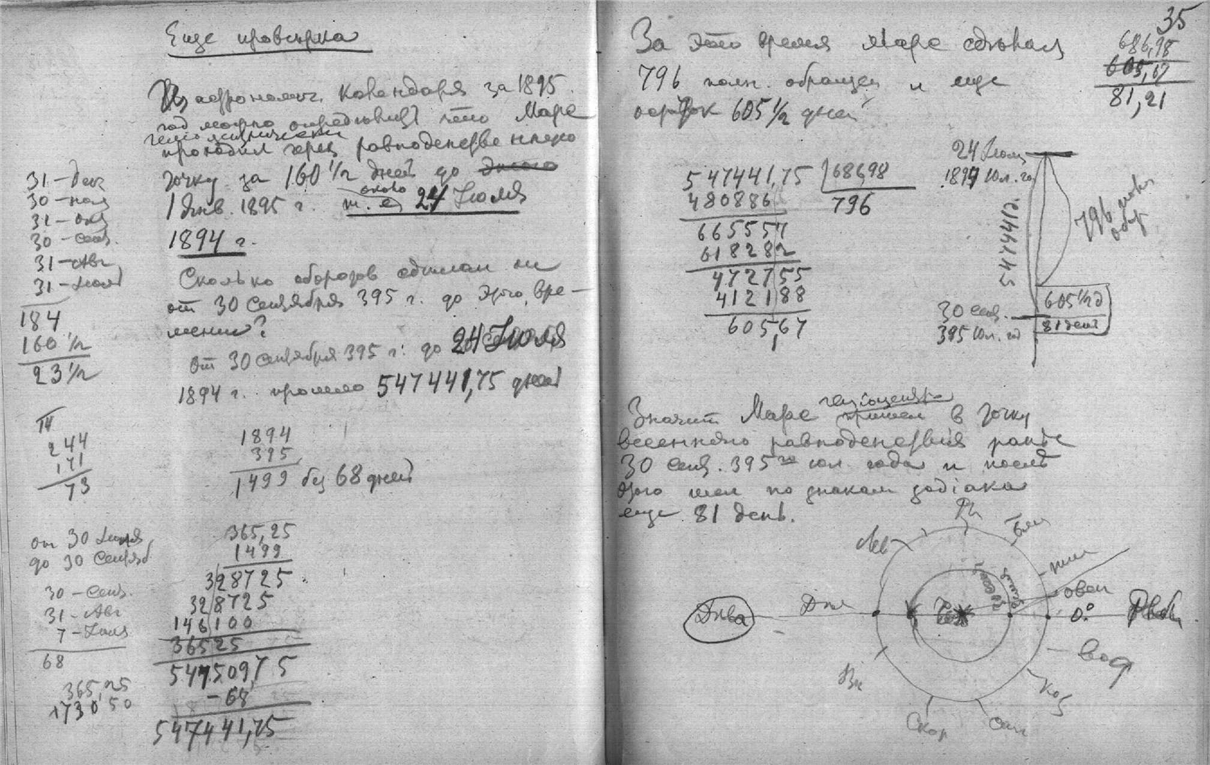 Еще проверка
Из астрономич. календаря за 1895
год можно определить что Марс
гелиоцентрически
проходил через равноденственную
точку за 160 1/2 дней до
1 Янв. 1895 г. т. е. около 24 Июля
1894 г.
Сколько оборотов сделал он
от 30 Сентября 395 г. до этого вре-
мени?
От 30 Сентября 395 г. до 24 Июля
1894 г. прошло 547441,75 дней
31 – Дек
30 – ноя
31 – окт
30 – сент.
31 – Авг
31 – Июля
184
160 1/2
23 1/2
244
171
73
1894
395
1499 без 68 дней
от 30 Июля
до 30 Сентяб
30 – Сент.
31 – Авг
7 – Июля
68
365,25
173050
365,25
1499
328725
328725
146100
36525
547509,75
– 68
547441,75
35
За это время Марс сделал
796 полн. обращен и еще
остаток 605 1/2 дней
686,98
605,17
81,21
547441,75 | 686,98
480886 796
665557
618282
472755
412188
60567
24 Июля
1894 Юл. год
547441 д.
796 полн
обр.
30 сент.
395 Юл. год
605 1/2 д
81 день
Значит Марс гелиоцентр. пришел в точку
весеннего равноденствия ранее
30 сент. 395 го юл. года и после
этого шел по знакам зодиака
еще 81 день.
Лев
Рак
Близ
тел
овен
0°
Дева
Рыбы
вод
Коз
Стр
Скор
Вес